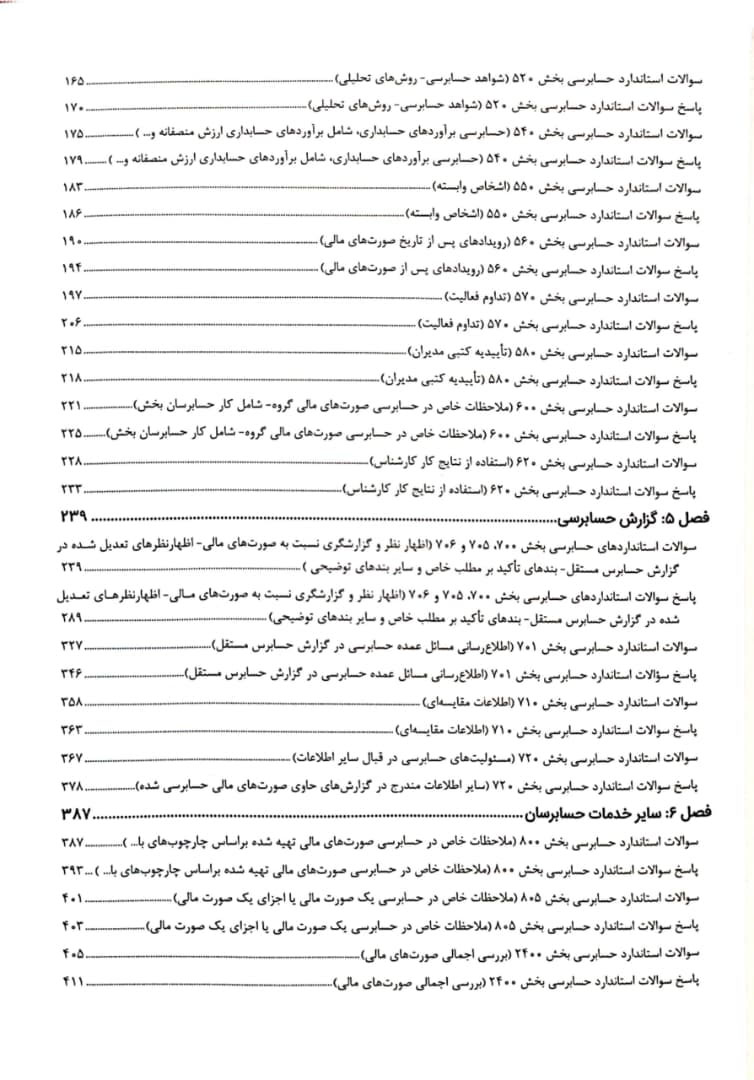 سوالات استاندارد حسابرسی بخش ۵۲۰ (شواهد حسابرسی- روش‌های تحلیلی)........۱۶۵
پاسخ سوالات استاندارد حسابرسی بخش ۵۲۰ (شواهد حسابرسی- روش‌های تحلیلی)........۱۷۰
سوالات استاندارد حسابرسی بخش ۵۴۰ (حسابرسی برآوردهای حسابداری، شامل برآوردهای حسابداری ارزش منصفانه و... )........۱۷۵
پاسخ سوالات استاندارد حسابرسی بخش ۵۴۰ (حسابرسی برآوردهای حسابداری، شامل برآوردهای حسابداری ارزش منصفانه و... )........۱۷۹
سوالات استاندارد حسابرسی بخش ۵۵۰ (اشخاص وابسته)........۱۸۳
پاسخ سوالات استاندارد حسابرسی بخش ۵۵۰ (اشخاص وابسته)........۱۸۶
سوالات استاندارد حسابرسی بخش ۵۶۰ (رویدادهای پس از تاریخ صورت‌های مالی)........۱۹۰
پاسخ سوالات استاندارد حسابرسی بخش ۵۶۰ (رویدادهای پس از صورت‌های مالی)........۱۹۴
سوالات استاندارد حسابرسی بخش ۵۷۰ (تداوم فعالیت)........۱۹۷
پاسخ سوالات استاندارد حسابرسی بخش ۵۷۰ (تداوم فعالیت)........۲۰۶
سوالات استاندارد حسابرسی بخش ۵۸۰ (تأییدیه کتبی مدیران)........۲۱۵
پاسخ سوالات استاندارد حسابرسی بخش ۵۸۰ (تأییدیه کتبی مدیران)........۲۱۸
سوالات استاندارد حسابرسی بخش ۶۰۰ (ملاحظات خاص در حسابرسی صورت‌های مالی گروه- شامل کار حسابرسان بخش)........۲۲۱
پاسخ سوالات استاندارد حسابرسی بخش ۶۰۰ (ملاحظات خاص در حسابرسی صورت‌های مالی گروه- شامل کار حسابرسان بخش)........۲۲۵
سوالات استاندارد حسابرسی بخش ۶۲۰ (استفاده از نتایج کار کارشناس)........۲۲۸
پاسخ سوالات استاندارد حسابرسی بخش ۶۲۰ (استفاده از نتایج کار کارشناس)........۲۳۳
فصل ۵: گزارش حسابرسی........۲۳۹
سوالات استانداردهای حسابرسی بخش ۷۰۰، ۷۰۵ و ۷۰۶ (اظهار نظر و گزارشگری نسبت به صورت‌های مالی- اظهارنظرهای تعدیل شده در
گزارش حسابرس مستقل- بندهای تأکید بر مطلب خاص و سایر بندهای توضیحی )........۲۳۹
پاسخ سوالات استانداردهای حسابرسی بخش ۷۰۰، ۷۰۵ و ۷۰۶ (اظهار نظر و گزارشگری نسبت به صورت‌های مالی- اظهارنظرهای تعدیل
شده در گزارش حسابرس مستقل- بندهای تأکید بر مطلب خاص و سایر بندهای توضیحی)........۲۸۹
سوالات استاندارد حسابرسی بخش ۷۰۱ (اطلاع‌رسانی مسائل عمده حسابرسی در گزارش حسابرس مستقل)........۳۲۷
پاسخ سؤالات استاندارد حسابرسی بخش ۷۰۱ (اطلاع‌رسانی مسائل عمده حسابرسی در گزارش حسابرس مستقل)........۳۴۶
سوالات استاندارد حسابرسی بخش ۷۱۰ (اطلاعات مقایسه‌ای)........۳۵۸
پاسخ سوالات استاندارد حسابرسی بخش ۷۱۰ (اطلاعات مقایسه‌ای)........۳۶۳
سوالات استاندارد حسابرسی بخش ۷۲۰ (مسئولیت‌های حسابرسی در قبال سایر اطلاعات)........۳۶۷
پاسخ سوالات استاندارد حسابرسی بخش ۷۲۰ (سایر اطلاعات مندرج در گزارش‌های حاوی صورت‌های مالی حسابرسی شده)........۳۷۸
فصل ۶: سایر خدمات حسابرسان........۳۸۷
سوالات استاندارد حسابرسی بخش ۸۰۰ (ملاحظات خاص در حسابرسی صورت‌های مالی تهیه شده براساس چارچوب‌های با... )........۳۸۷
پاسخ سوالات استاندارد حسابرسی بخش ۸۰۰ (ملاحظات خاص در حسابرسی صورت‌های مالی تهیه شده براساس چارچوب‌های با... )...۳۹۳
سوالات استاندارد حسابرسی بخش ۸۰۵ (ملاحظات خاص در حسابرسی یک صورت مالی یا اجزای یک صورت مالی)........۴۰۱
پاسخ سوالات استاندارد حسابرسی بخش ۸۰۵ (ملاحظات خاص در حسابرسی یک صورت مالی یا اجزای یک صورت مالی)........۴۰۳
سوالات استاندارد حسابرسی بخش ۲۴۰۰ (بررسی اجمالی صورت‌های مالی)........۴۰۵
پاسخ سوالات استاندارد حسابرسی بخش ۲۴۰۰ (بررسی اجمالی صورت‌های مالی)........۴۱۱